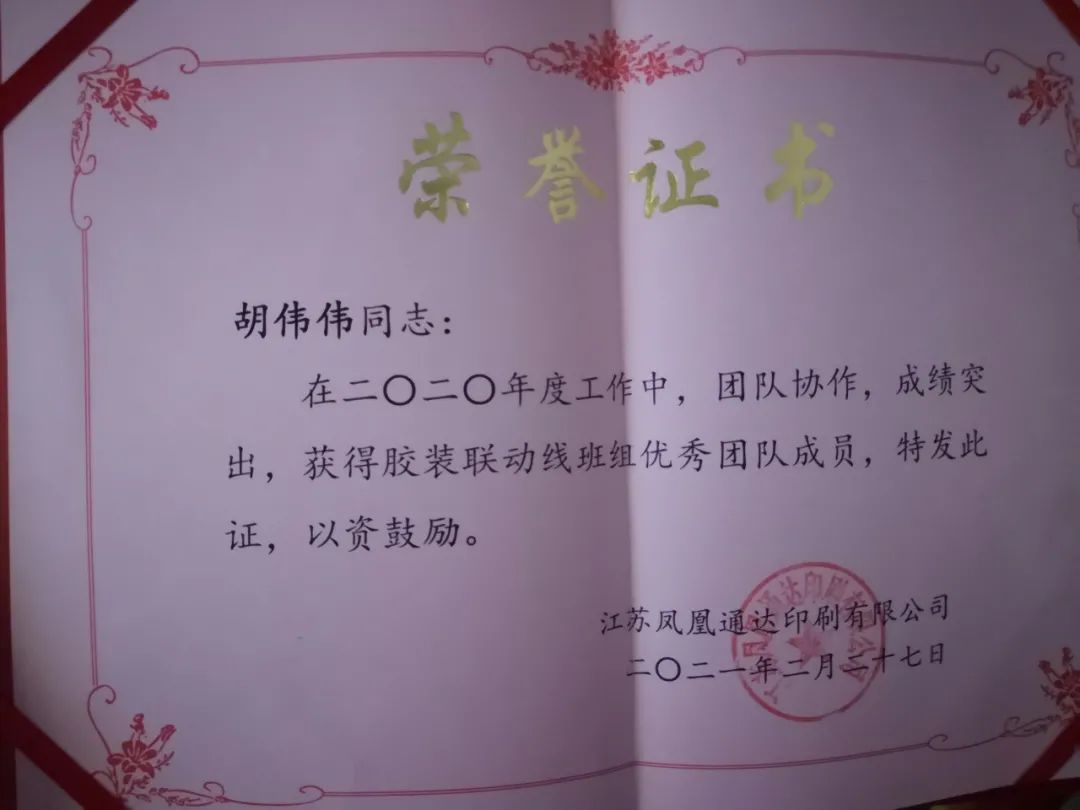 荣誉证书
胡伟伟同志：
在二〇二〇年度工作中，团队协作，成绩突
出，获得胶装联动线班组优秀团队成员，特发此
证，以资鼓励。
江苏凤凰通达印刷有限公司
二〇二一年二月二十七日